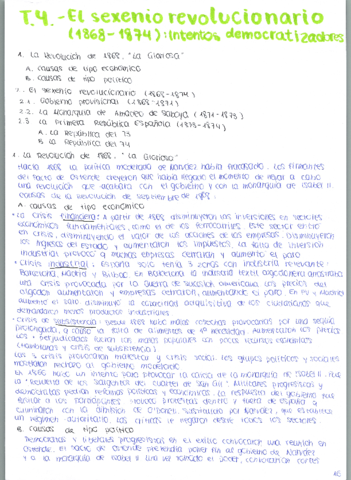 T.4.- El sexenio revolucionario
(1868-1874): Intentos democratizadores
1. La Revolución de 1868, "La Gloriosa"
A. causas de tipo económico
B. causas de tipo político
2. El sexenio revolucionario (1868-1874)
2.1. Gobierno provisional (1868-1871)
2.2. La Monarquía de Amadeo de Saboya (1871-1873)
2.3 La primera República Española (1873-1874)
A. La República del 73
B. La República del 74
1. La Revolución de "La Gloriosa"
Hacia 1868 la política moderada de había fracasado. Los firmantes
del pacto de Ostende creyeron que había llegado el momento de llevar a cabo
una revolución que acabara con el gobierno y con la monarquía de Isabel II.
causas de la revolución de septiembre de 1868.
A. causas de tipo económico
• La crisis financiera: A partir de 1866 disminuyeron las inversiones en sectores
económicos fundamentales, como el de los ferrocarriles. Este sector entró
en crisis, disminuyendo el valor de las acciones de las empresas. Disminuyeron
los ingresos del estado y aumentaron los impuestos. La falta de inversión
industrial provocó a muchas empresas cerraran y aumentó el paro
• crisis industrial: España solo tenía 3 zonas con industria relevante:
Barcelona, Madrid y Bilbao. En Barcelona la industria textil algodonera arrastraba
una crisis provocada por la Guerra de Americana. Los precios del
algodón aumentaron y empresas cerraron, aumentando el paro. En y Madrid
aumentó el paro, disminuyó la capacidad adquisitiva de los ciudadanos que
demandaban menos productos industriales
• crisis de subsistencia: desde 1866 hubo malas cosechas provocadas por una sequía
prolongada, a falta de alimentos de 1ª necesidad. Aumentaron los precios
y perjudicados fueron las clases populares con pocos recursos económicos
crisis de subsistencia)
Las 3 crisis provocaron malestar y crisis social. Los grupos políticos y sociales
mostraron rechazo al gobierno moderado
En 1866 hubo un intento para provocar la caída de la monarquía de Isabel II. Fue
la "Revuelta de los sargentos del cuartel de San Gil". Militares progresistas y
demócratas pedían reformas políticas y económicas. La respuesta del gobierno fue
fusilar a los Hubo protestas dentro y fuera de España y
culminaron con la dimisión de O'Donell, sustituido por Narváez, que estableció
un régimen autoritario. Las críticas le llegaron desde todos los sectores
B. causas de tipo político
Demócratas y liberales progresistas en el exilio convocan una reunión en
Ostende. El pacto de Ostende pretendía poner fin al gobierno de Narváez
y a la monarquía de Isabel II una vez tomado el poder, convocarían cortes